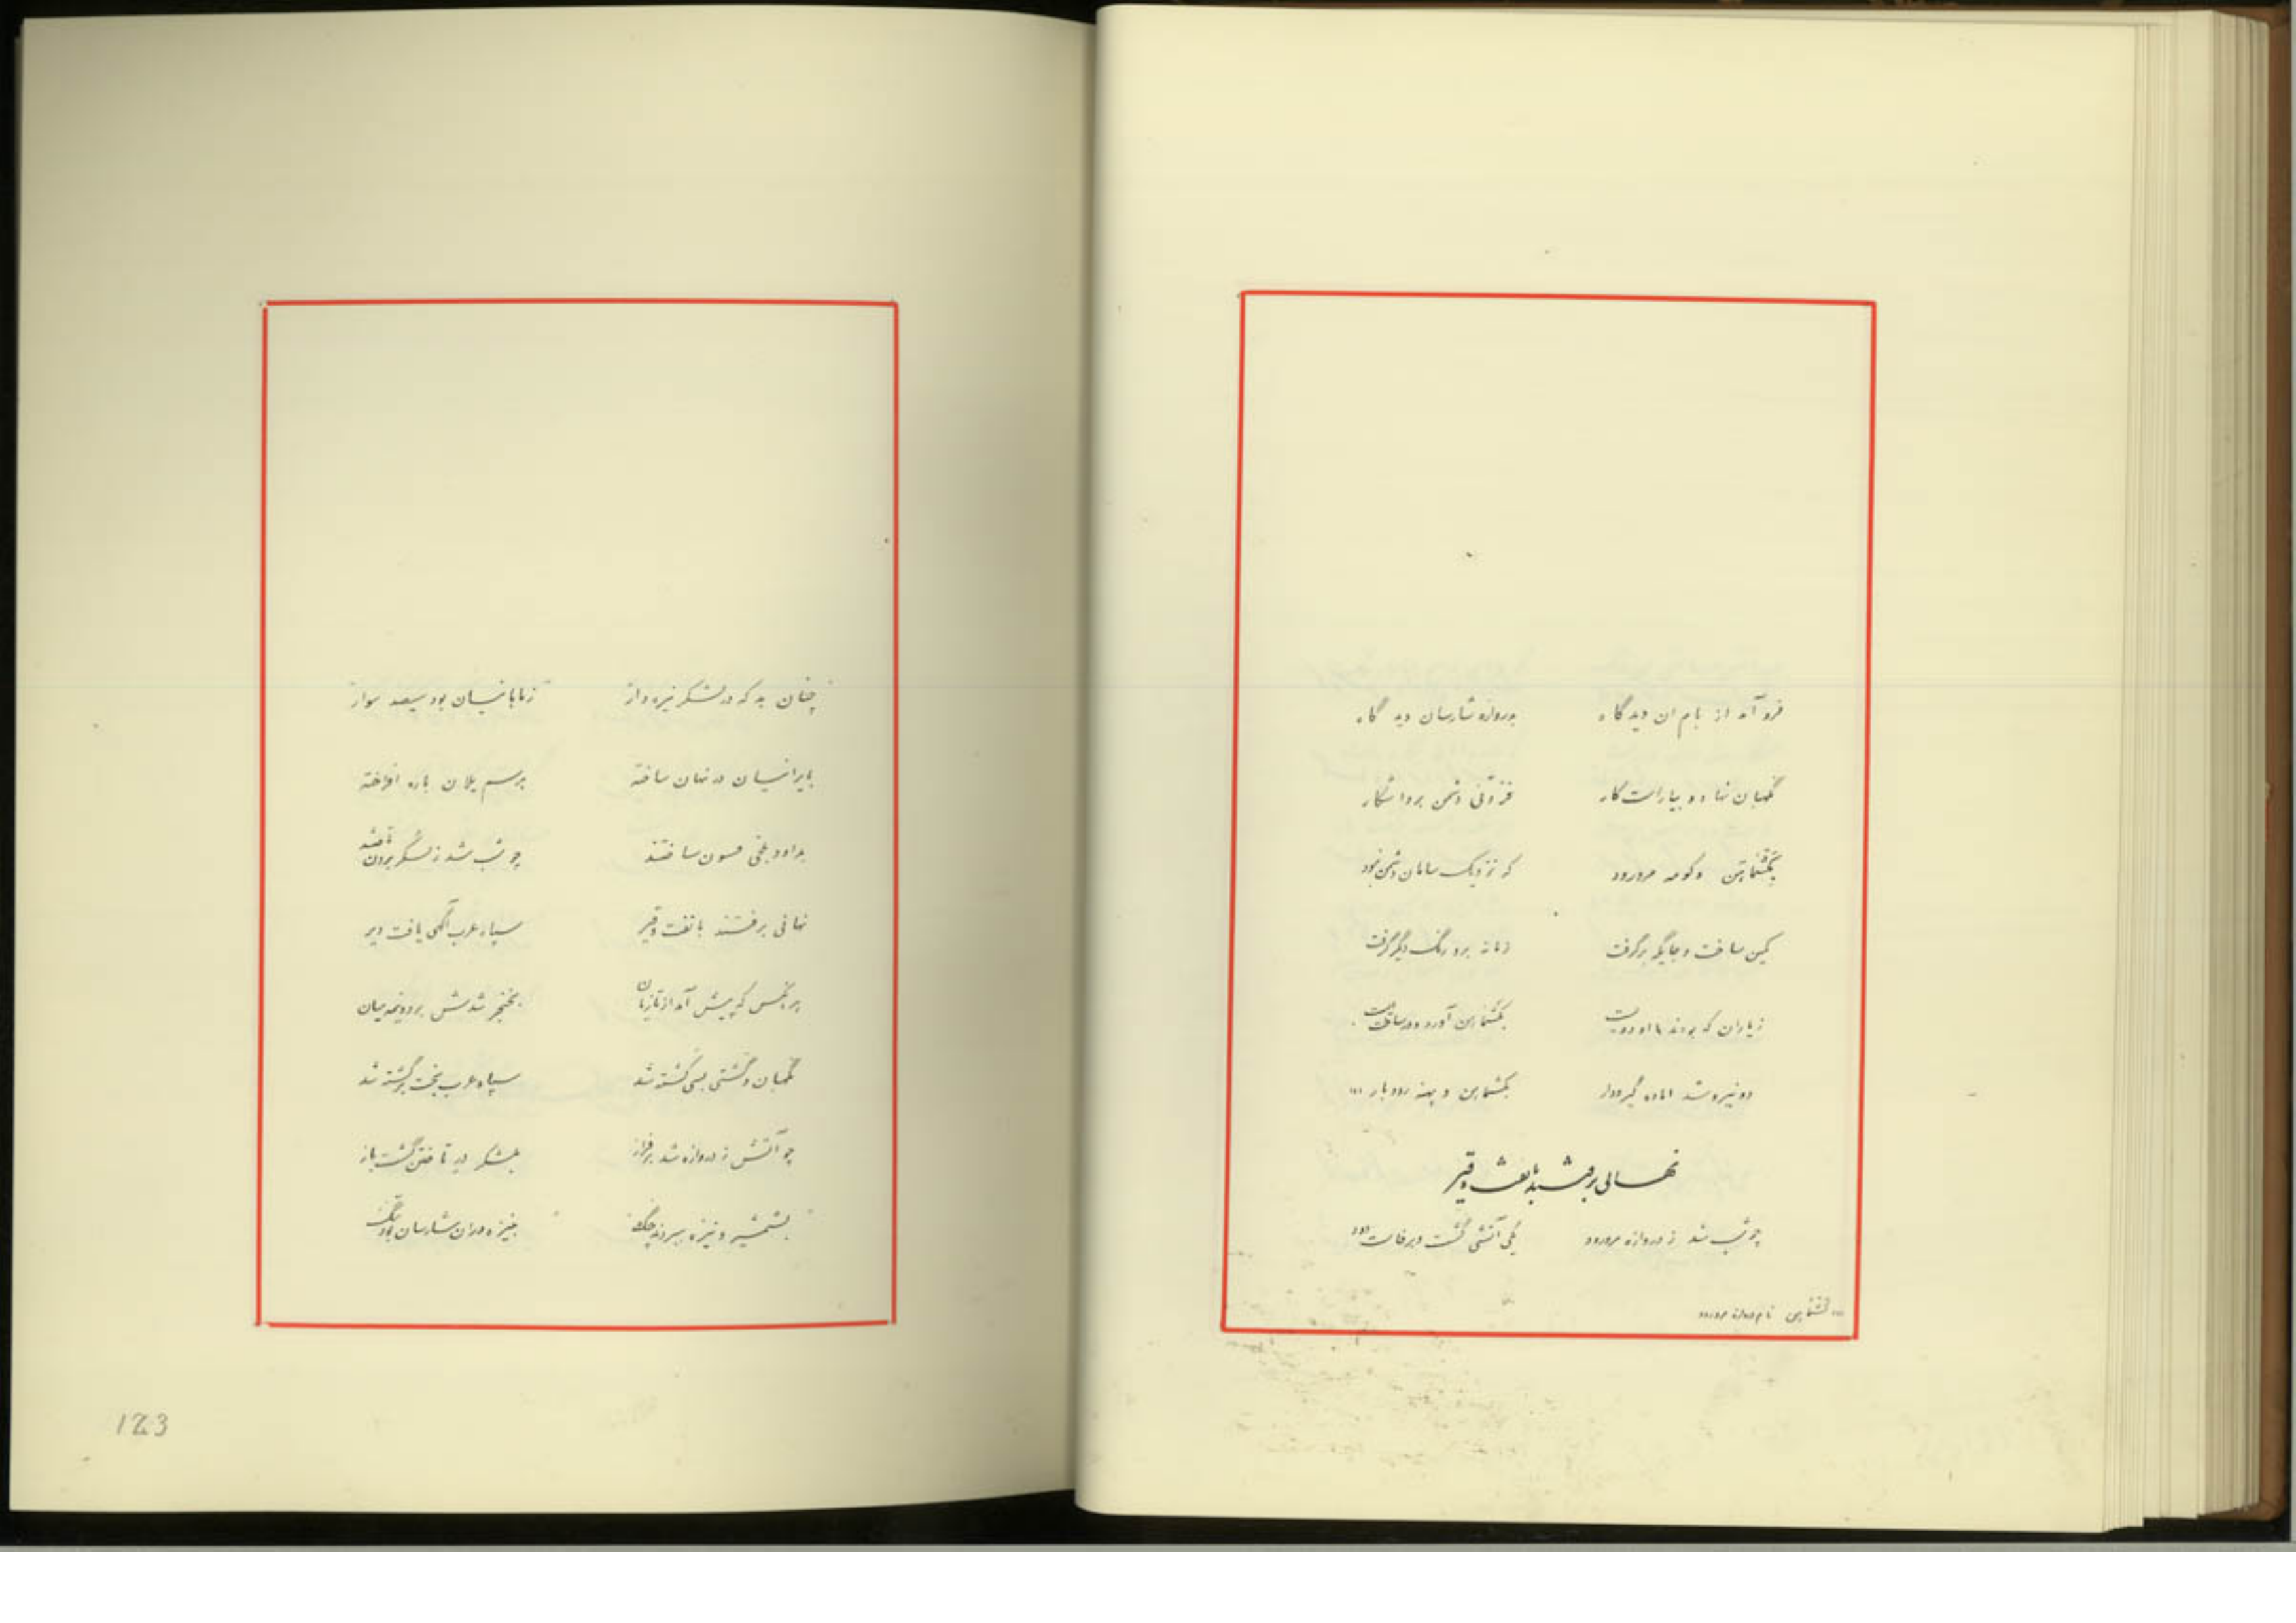 فرو آمد از بام آن دیدگاه بدروازه شارسان دید گاه
نگهبان نهاد و بیاراست کار فزونی دشمن برد آشکار
وکومه مرورود که نزدیک سامان دشمن نبود
کمین ساخت و جایگه برگرفت زمانه برو رنگ دیگر گرفت
زیاران که بودند با او دویست آورد و در ساخت
دو نیرو شد آماده گیرودار و پهنه رودبار
نهانی برفتند با نفت و قیر
چو شب شد ز دروازه مرورود یکی آتشی گشت و برخاست دود
نام دروازه مرورود
چنان بد که در لشکر نیزه دار زمابانیان بود سیصد سوار
بایرانیان در نهان ساخته برسم یلان باره افراخته
بداود بلخی فسون ساختند چو شب شد ز لشکر برون تاختند
نهانی برفتند با نفت و قیر سپاه عرب آگهی یافت دیر
هر آنکس که پیش آمد از تازیان بخنجر شدش بر دو نیمه میان
نگهبان و گشتی بسی کشته شد سپاه عرب بخت برگشته شد
چو آتش ز دروازه شد برفراز بلشکر در تاختن گشت باز
بشمشیر و نیزه ببردند جنگ نیزه وران شارسان بود تنگ
123